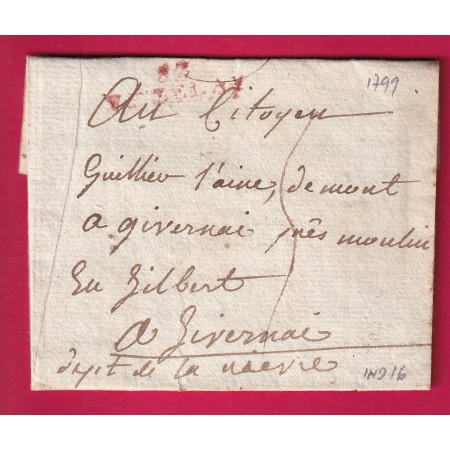 1799
VEZELAY
Au Citoyen
Guillier l'ainé, demont
a givernai près moulin
En Gilbert
a Givernai
dept de la nievre
IND 16